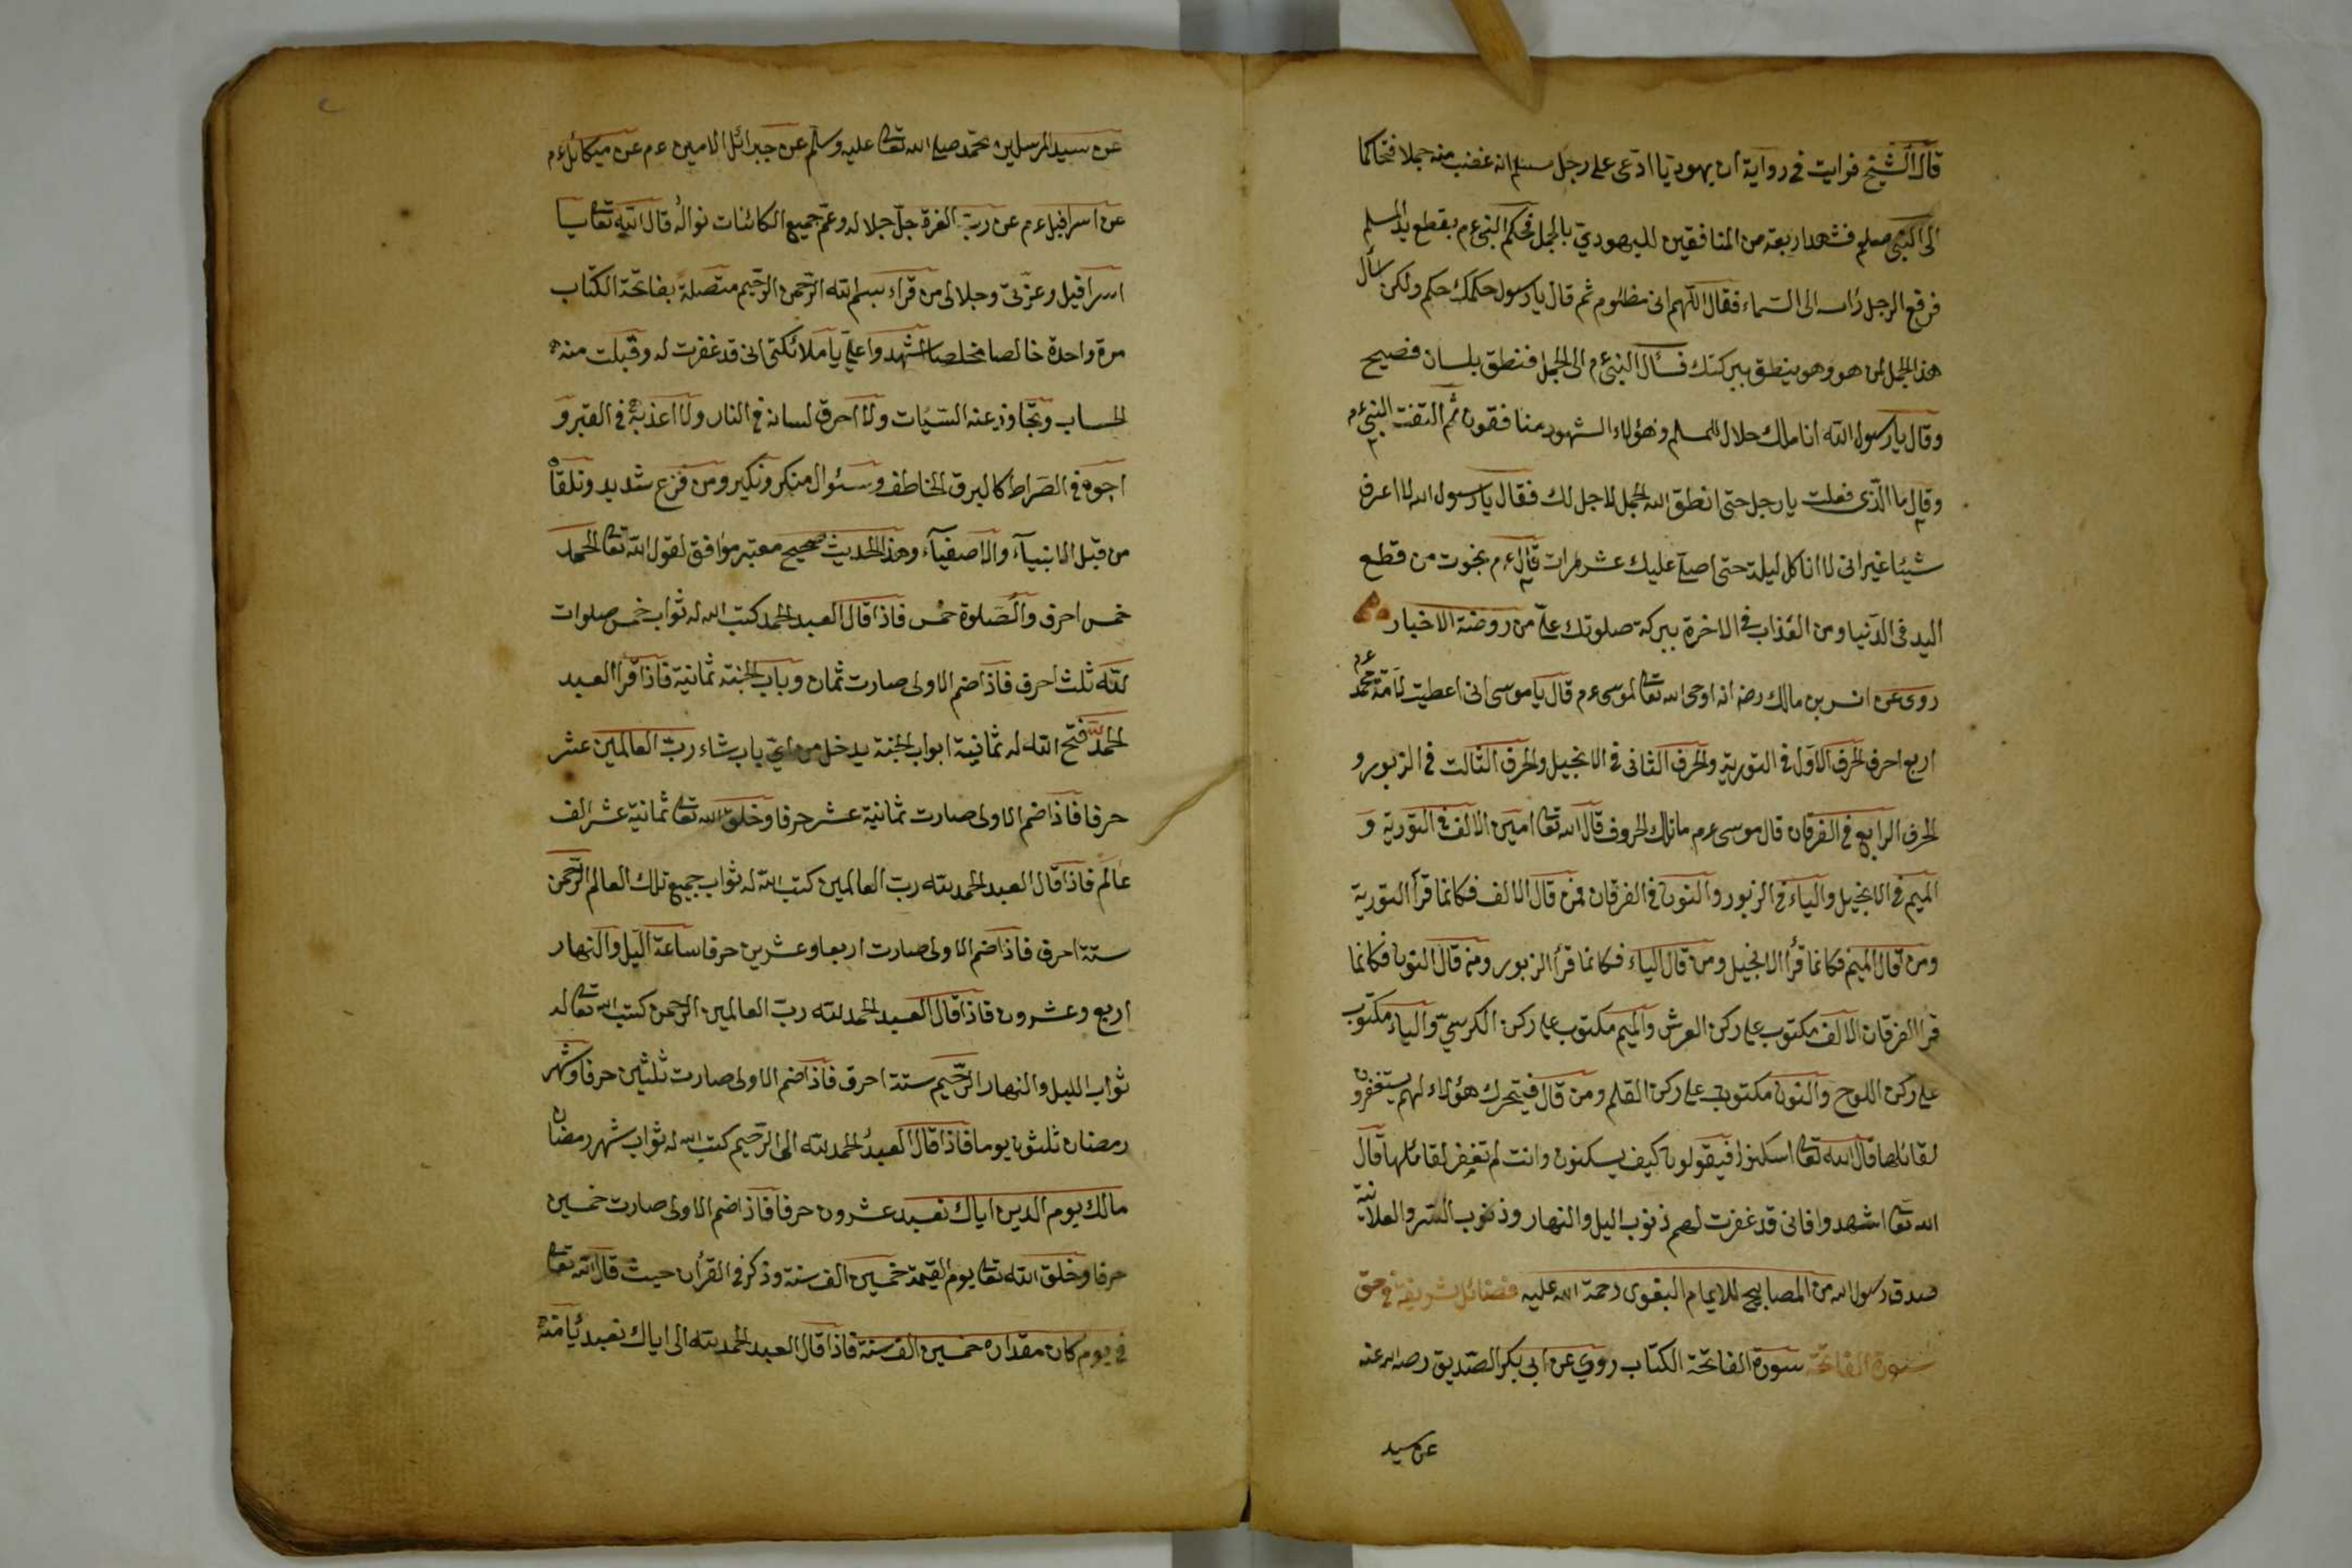 قال الشيخ فرايت فى رواية ان يهوديا ادعى على رجل مسلم انه غصب منه جملا فتحاكما
الى النبى صلعم فشهد اربعة من المنافقين لليهودي بالجمل فحكم النبى ءم بقطع يد المسلم
فرفع الرجل راسه الى السماء فقال اللهم انى مظلوم ثم قال يا رسول حكمك حكم ولكن سأل
هذا الجمل لمن هو وهو ينطق ببركتك فسأل النبى ءم الى الجمل فنطق بلسان فصيح
وقال يا رسول الله انا ملك حلال للمسلم وهؤلاء الشهود منافقون ثم التفت النبى ءم
وقال ما الذى فعلت يا رجل حتى انطق الله الجمل لاجل لك فقال يا رسول الله لا اعرف
شيئا غير انى لا انا كل ليلة حتى اصلى عليك عشر مرات قال ءم نجوت من قطع
اليد فى الدنيا ومن العذاب فى الاخرة ببركة صلوتك على من روضة الاخيار
روى عن انس بن مالك رضه انه اوحى الله تعا لموسى ءم قال يا موسى انى اعطيت لامة محمد ءم
اربع احرف الحرف الاول فى التورية والحرف الثانى فى الانجيل والحرف الثالث فى الزبور و
الحرف الرابع فى الفرقان قال موسى ءم ما تلك الحروف قال الله تعا امين الالف فى التورية و
الميم فى الانجيل والياء فى الزبور والنون فى الفرقان فمن قال الالف فكانما قرأ التورية
ومن قال الميم فكانما قرأ الانجيل ومن قال الياء فكانما قرأ الزبور ومن قال النون فكانما
قرا الفرقان الالف مكتوب على ركن العرش والميم مكتوب على ركن الكرسي والياء مكتوب
على ركن اللوح والنون مكتوب على ركن القلم ومن قال فيتحرك هؤلاء لهم يستغفرون
لقائلها قال الله تعا اسكنوا فيقولون كيف يسكنون وانت لم تغفر لقائلها قال
الله تعا اشهدوا فانى قد غفرت لهم ذنوب اليل والنهار وذنوب السر والعلانية
صدق رسول الله من المصابيح للايمام البغوى رحمة الله عليه فضائل شريفة فى حق
سورة الفاتحة سورة الفاتحة الكتاب روي عن ابى بكر الصديق رضه الله عنه
عن سيد
عن سيد المرسلين محمد صلى الله تعا عليه وسلم عن جبرائل الامين ءم عن ميكائل ءم
عن اسرافيل ءم عن رب العزة جل جلاله وعم جميع الكائنات نواله قال الله تعا يا
اسرافيل وعزتى وجلالى من قراء بسم الله الرحمن الرحيم متصلة بفاتحة الكتاب
مرة واحدة خالصا مخلصا اشهدوا على يا ملائكتى انى قد غفرت له وقبلت منه
الحساب وتجاوز عنه السيات ولا احرق لسانه فى النار ولا اعذبه فى القبر و
اجوه فى الصراط كالبرق الخاطف وسئوال منكر ونكير ومن فزع شديد وتلقا
من قبل الانبياء والاصفياء وهذا الحديث صحيح معتبر موافق لقول الله تعا الحمد
خمس احرف والصلوة خمس فاذا قال العبد الحمد كتب الله له ثواب خمس صلوات
لله ثلث احرف فاذا ضم الاولى صارت ثمان وباب الجنة ثمانية فاذا قرأ العبد
الحمد لله فتح الله له ثمانية ابواب الجنة يدخل من اي باب شاء رب العالمين عشر
حرفا فاذا ضم الاولى صارت ثمانية عشر حرفا وخلق الله تعا ثمانية عشر الف
عالم فاذا قال العبد الحمد لله رب العالمين كتب الله له ثواب جميع تلك العالم الرحمن
ستة احرف فاذا ضم الاولى صارت اربعا وعشرين حرفا ساعة اليل والنهار
اربع وعشرون فاذا قال العبد الحمد لله رب العالمين الرحمن كتب الله تعا له
ثواب الليل والنهار الرحيم ستة احرف فاذا ضم الاولى صارت ثلثين حرفا وشهر
رمضان ثلثون يوما فاذا قال العبد الحمد لله الى الرحيم كتب الله له ثواب شهر رمضان
مالك يوم الدين اياك نعبد عشرون حرفا فاذا ضم الاولى صارت خمسين
حرفا وخلق الله تعا يوم القيمة خمسين الف سنة وذكر فى القرأن حيث قال الله تعا
فى يوم كان مقداره خمسين الف سنة فاذا قال العبد الحمد لله الى اياك نعبد